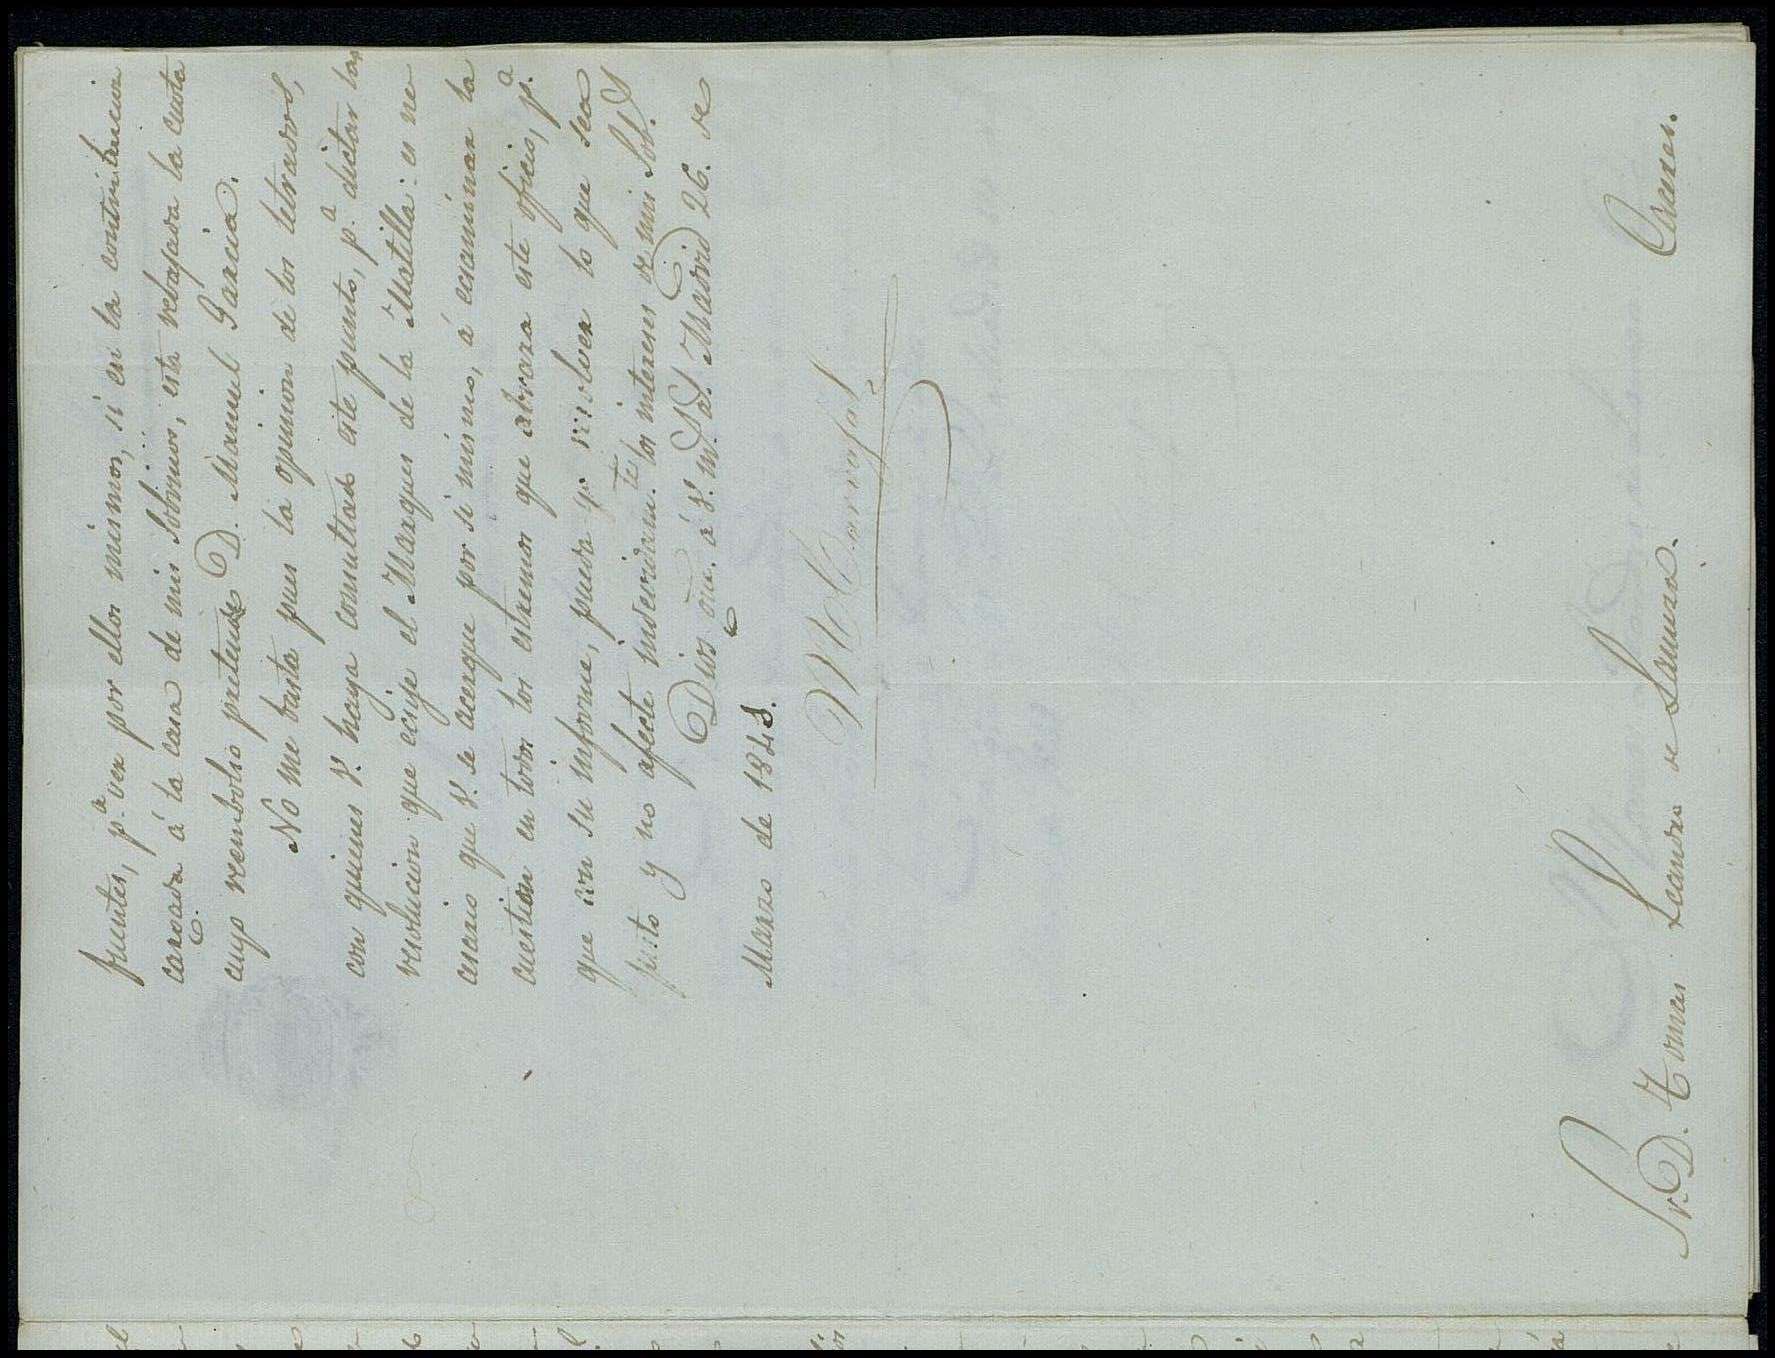 fuentes, p.ª ver por ellos mismos, si en la contribucion
cargada á la casa de mis Sobrinos, está rebajada la cuota
cuyo reembolso pretende D. Manuel Garcia.
No me basta pues la opinion de los letrados,
con quienes V. haya consultado este punto, p.ª dictar la
resolucion que exije el Marques de la Matilla: es ne
cesario que V. se acerque por si mismo, á ecsaminar la
cuestion en todos los estremos que abraza este oficio, p.ª
que con su informe, pueda yo resolver lo que sea
justo y no afecte indevidam.te los intereses de mis Sob.s
Dios gue. á V. m.s a.s Madrid 26. de
Marzo de 1848.
M Carvajal
Sr. D. Tomas Leandro de Caceres.